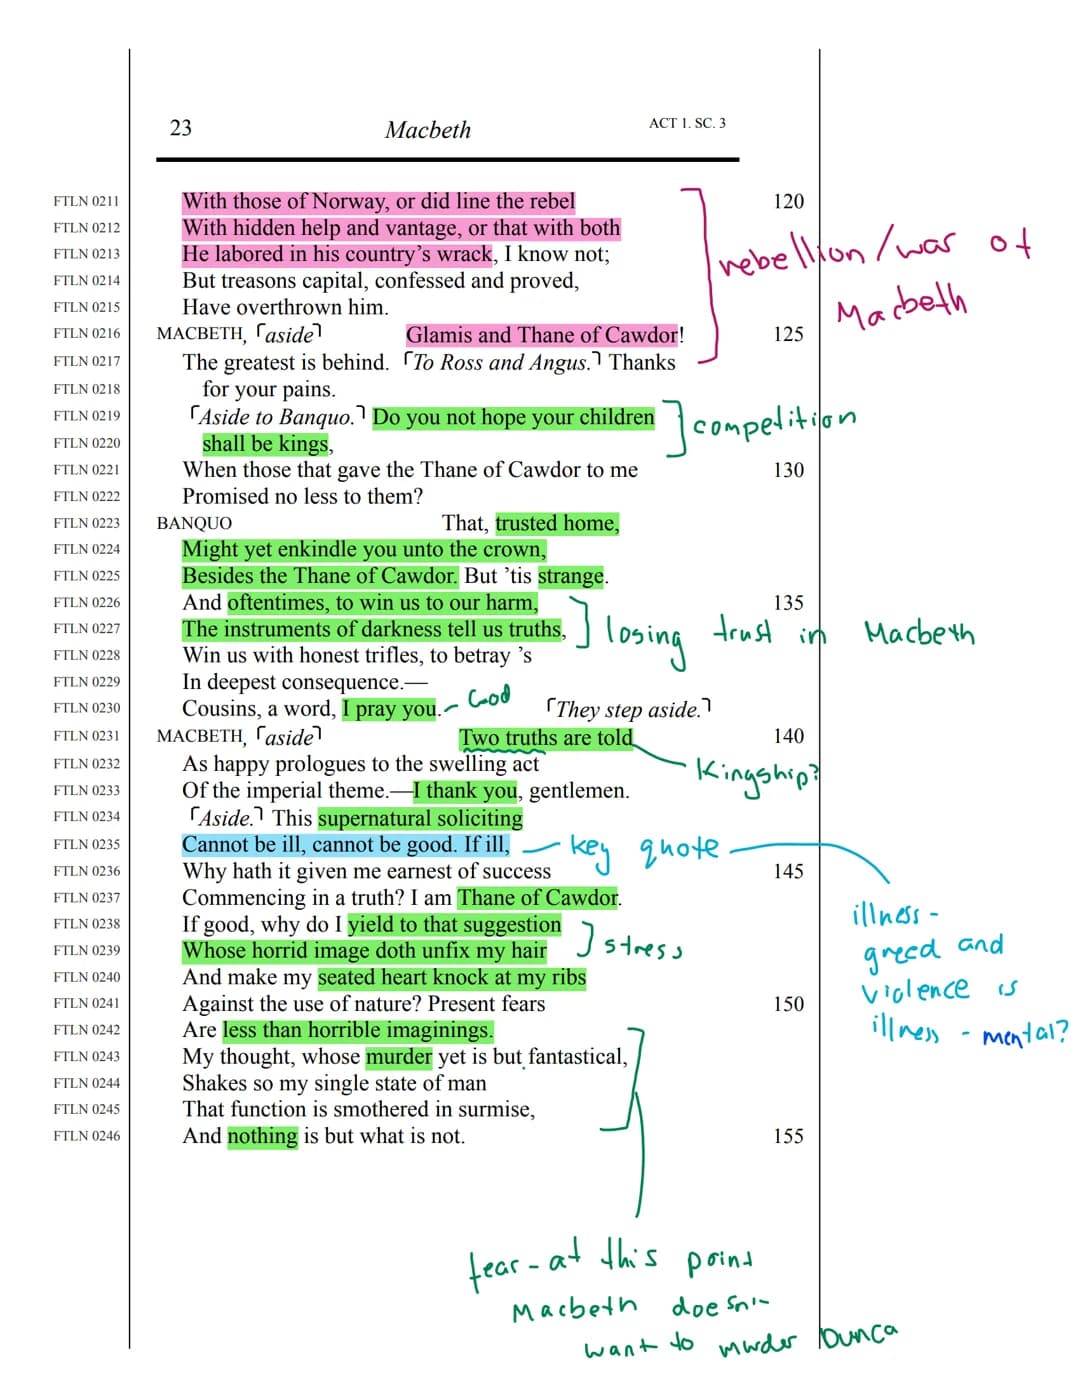 23 Macbeth ACT 1. SC. 3
FTLN 0211 With those of Norway, or did line the rebel 120
FTLN 0212 With hidden help and vantage, or that with both
FTLN 0213 He labored in his country’s wrack, I know not;
rebellion/war of
Macbeth
FTLN 0214 But treasons capital, confessed and proved,
FTLN 0215 Have overthrown him.
FTLN 0216 MACBETH, ⌜aside⌝ Glamis and Thane of Cawdor! 125
FTLN 0217 The greatest is behind. ⌜To Ross and Angus.⌝ Thanks
FTLN 0218 for your pains.
FTLN 0219 ⌜Aside to Banquo.⌝ Do you not hope your children
competition
FTLN 0220 shall be kings,
FTLN 0221 When those that gave the Thane of Cawdor to me 130
FTLN 0222 Promised no less to them?
FTLN 0223 BANQUO That, trusted home,
FTLN 0224 Might yet enkindle you unto the crown,
FTLN 0225 Besides the Thane of Cawdor. But ’tis strange.
FTLN 0226 And oftentimes, to win us to our harm, 135
FTLN 0227 The instruments of darkness tell us truths,
losing trust in Macbeth
FTLN 0228 Win us with honest trifles, to betray ’s
FTLN 0229 In deepest consequence.—
FTLN 0230 Cousins, a word, I pray you. - God ⌜They step aside.⌝
FTLN 0231 MACBETH, ⌜aside⌝ Two truths are told 140
Kingship?
FTLN 0232 As happy prologues to the swelling act
FTLN 0233 Of the imperial theme.—I thank you, gentlemen.
FTLN 0234 ⌜Aside.⌝ This supernatural soliciting
FTLN 0235 Cannot be ill, cannot be good. If ill,
key quote
FTLN 0236 Why hath it given me earnest of success 145
FTLN 0237 Commencing in a truth? I am Thane of Cawdor.
FTLN 0238 If good, why do I yield to that suggestion
FTLN 0239 Whose horrid image doth unfix my hair
stress
illness -
greed and
violence is
illness - mental?
FTLN 0240 And make my seated heart knock at my ribs
FTLN 0241 Against the use of nature? Present fears 150
FTLN 0242 Are less than horrible imaginings.
FTLN 0243 My thought, whose murder yet is but fantastical,
FTLN 0244 Shakes so my single state of man
FTLN 0245 That function is smothered in surmise,
FTLN 0246 And nothing is but what is not. 155
fear - at this point
Macbeth doesn't
want to murder Dunca